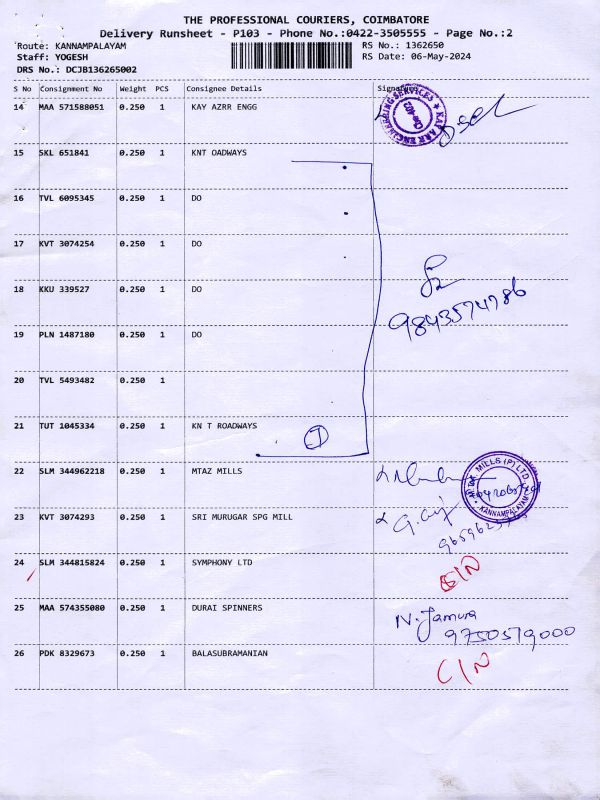 THE PROFESSIONAL COURIERS, COIMBATORE
Delivery Runsheet - P103 - Phone No.:0422-3505555 - Page No.:2
Route: KANNAMPALAYAM RS No.: 1362650
Staff: YOGESH RS Date: 06-May-2024
DRS No.: DCJB136265002
S No Consignment No Weight PCS Consignee Details Signature
14 MAA 571588051 0.250 1 KAY AZRR ENGG
KAY ARR ENGINEERING SERVICES
15 SKL 651841 0.250 1 KNT OADWAYS
16 TVL 6095345 0.250 1 DO
17 KVT 3074254 0.250 1 DO
18 KKU 339527 0.250 1 DO
9843574786
19 PLN 1487180 0.250 1 DO
20 TVL 5493482 0.250 1
21 TUT 1045334 0.250 1 KN T ROADWAYS
7
22 SLM 344962218 0.250 1 MTAZ MILLS
MILLS (P) LTD
KANNAMPALAYAM
23 KVT 3074293 0.250 1 SRI MURUGAR SPG MILL
24 SLM 344815824 0.250 1 SYMPHONY LTD
25 MAA 574355080 0.250 1 DURAI SPINNERS N. Jamuna
9750579000
26 PDK 8329673 0.250 1 BALASUBRAMANIAN C/N